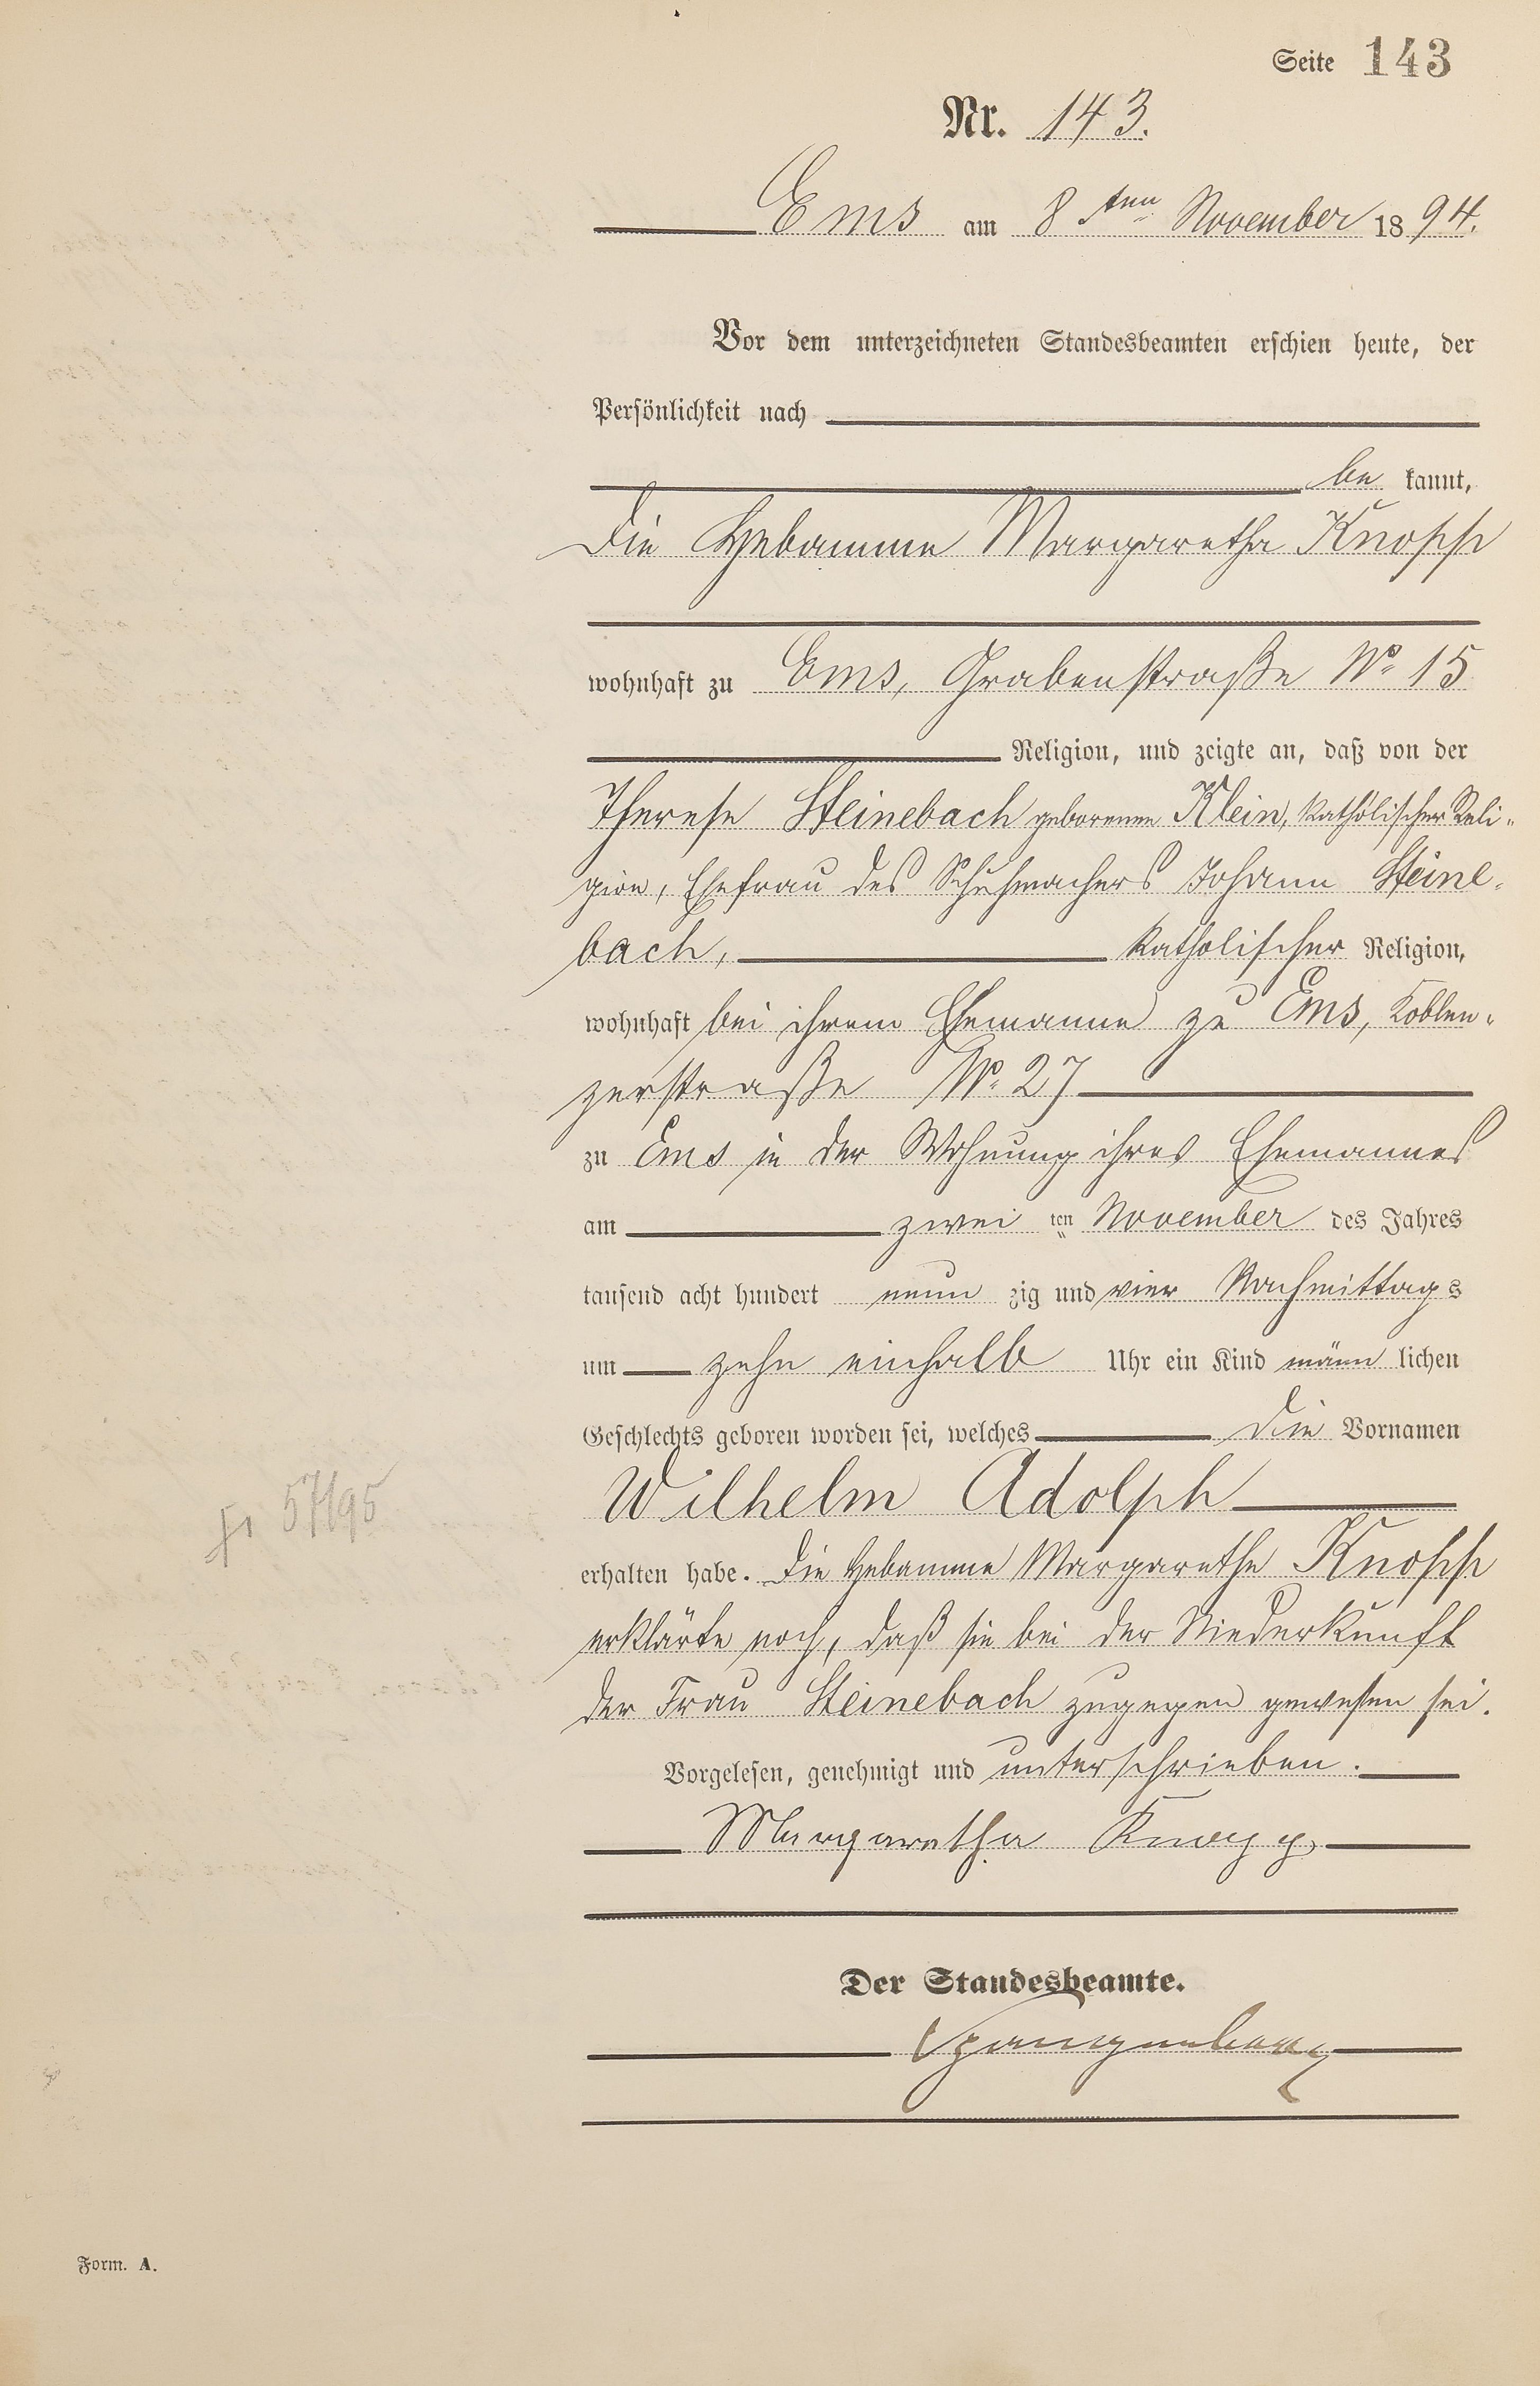 Seite 143
Nr. 143.
Ems am 8ten November 1894.
Vor dem unterzeichneten Standesbeamten erschien heute, der
Persönlichkeit nach
bekannt,
die Hebamme Margaretha Knopp
wohnhaft zu Ems, Grabenstraße No 15
Religion, und zeigte an, daß von der
Therese Steinebach geborenen Klein, katholischer Reli-
gion, Ehefrau des Schuhmachers Johann Steine-
bach, katholischer Religion,
wohnhaft bei ihrem Ehemanne zu Ems, Koblen-
zerstraße No 27
zu Ems in der Wohnung ihres Ehemannes
am zweiten November des Jahres
tausend acht hundert neunzig und vier Nachmittags
um zehn einhalb Uhr ein Kind männlichen
Geschlechts geboren worden sei, welches die Vornamen
Wilhelm Adolph
erhalten habe. Die Hebamme Margarethe Knopp
erklärte noch, daß sie bei der Niederkunft
der Frau Steinebach zugegen gewesen sei.
Vorgelesen, genehmigt und unterschrieben.
Margaretha Knopp
Der Standesbeamte.
Spangenberg
Form. A.